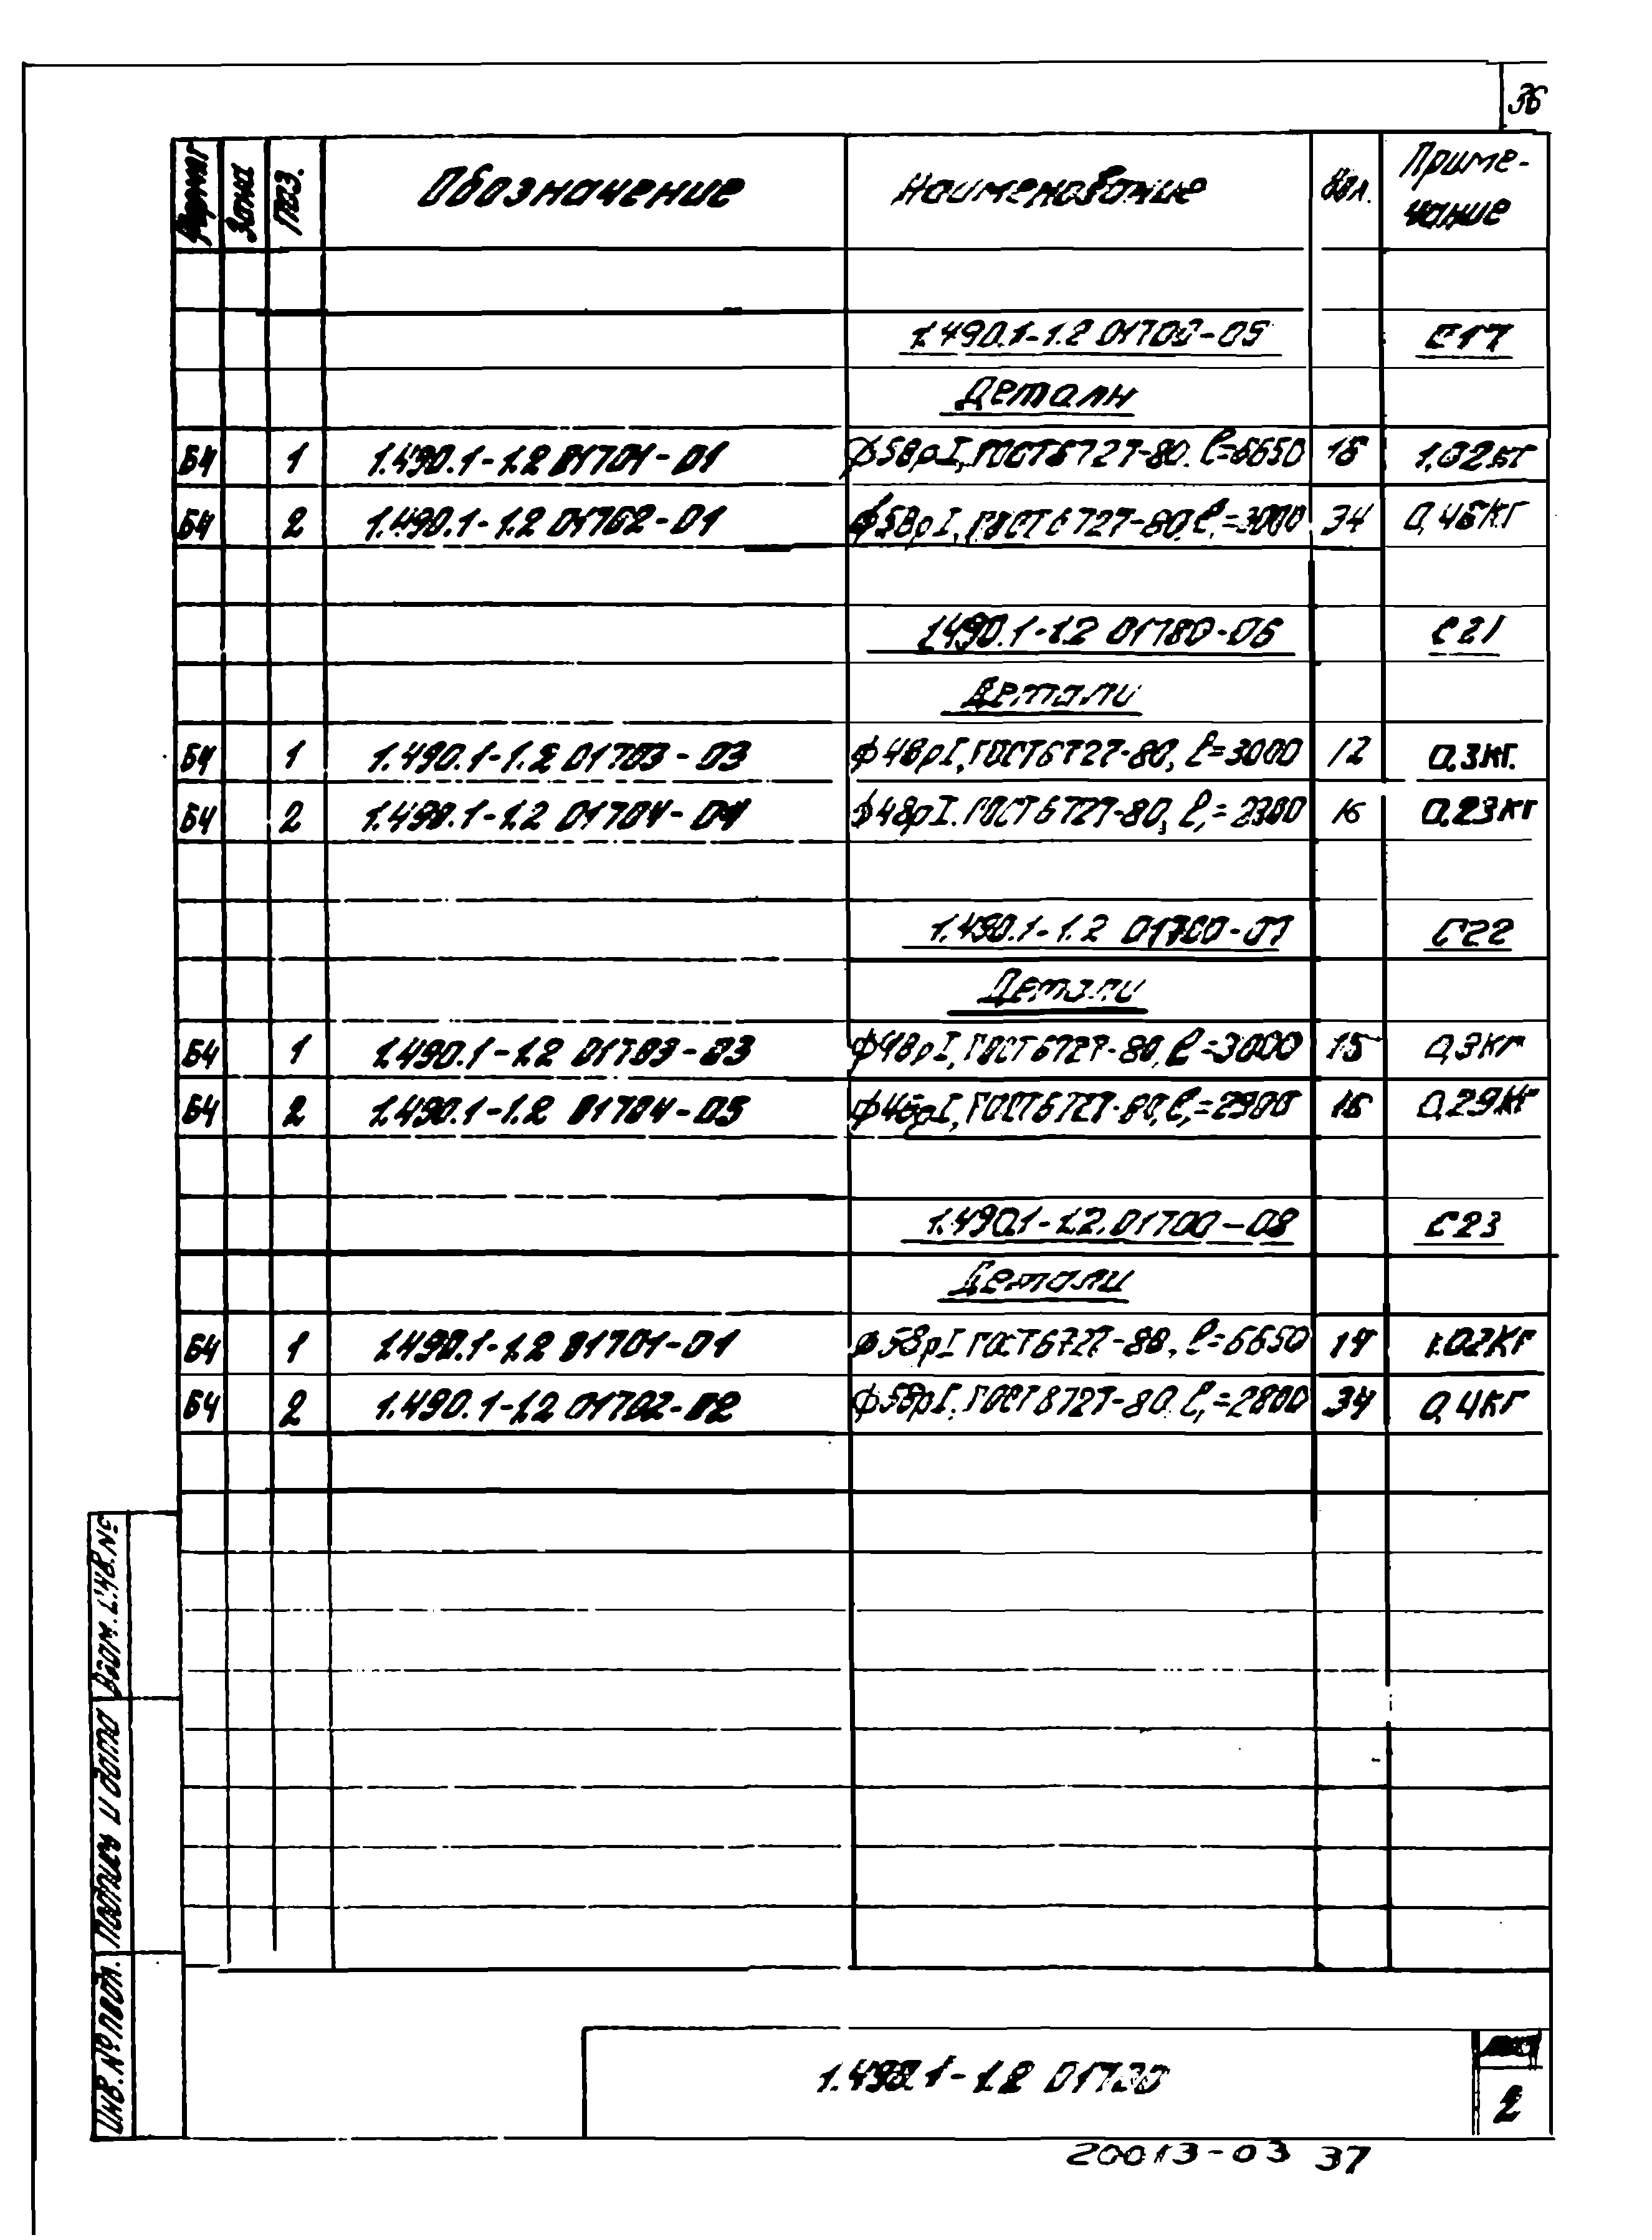 36
Формат Зона Поз. Обозначение Наименование Кол. Приме-
чание
1.490.1-1.2 01700-05 С17
Детали
БЧ 1 1.490.1-1.2 01701-01 ф5ВрI, ГОСТ 6727-80. ℓ=6650 16 1.02кг
БЧ 2 1.490.1-1.2 01702-01 ф5ВрI, ГОСТ 6727-80, ℓ₁=3000 34 0,46кг
1.490.1-1.2 01700-06 С21
Детали
БЧ 1 1.490.1-1.2 01703-03 ф4ВрI, ГОСТ 6727-80, ℓ=3000 12 0.3кг.
БЧ 2 1.490.1-1.2 01704-04 ф4ВрI. ГОСТ 6727-80, ℓ₁=2300 16 0.23кг
1.490.1-1.2 01700-07 С22
Детали
БЧ 1 1.490.1-1.2 01703-03 ф4ВрI, ГОСТ 6727-80, ℓ=3000 15 0,3кг
БЧ 2 1.490.1-1.2 01704-05 ф4ВрI, ГОСТ 6727-80, ℓ₁=2900 16 0,29кг
1.490.1-1.2.01700-08 С23
Детали
БЧ 1 1.490.1-1.2 01701-01 ф5ВрI ГОСТ 6727-80, ℓ=6650 14 1.02кг
БЧ 2 1.490.1-1.2 01702-02 ф5ВрI. ГОСТ 6727-80. ℓ₁=2800 34 0,4кг
Взам. инв. №
Подпись и дата
Инв. № подл.
1.490.1-1.2 01700
Лист
2
20013-03 37